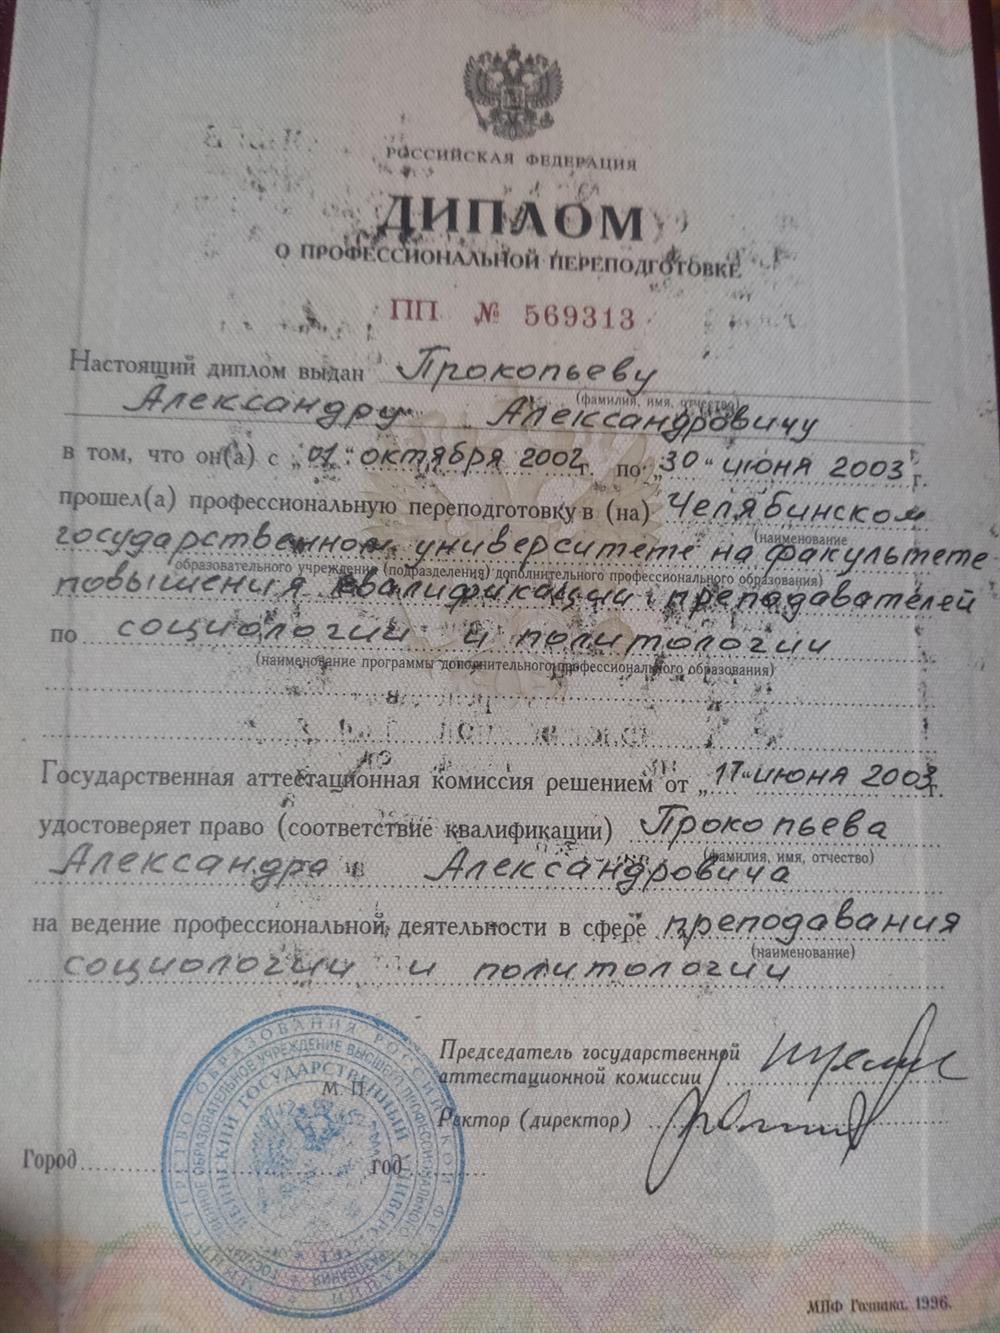 РОССИЙСКАЯ ФЕДЕРАЦИЯ
ДИПЛОМ
О ПРОФЕССИОНАЛЬНОЙ ПЕРЕПОДГОТОВКЕ
ПП № 569313
Настоящий диплом выдан Прокопьеву
(фамилия, имя, отчество)
Александру Александровичу
в том, что он(а) с „01“ октября 2002 г. по „30“ июня 2003 г.
прошел(а) профессиональную переподготовку в (на) Челябинском
(наименование
государственном университете на факультете
образовательного учреждения (подразделения) дополнительного профессионального образования)
повышения квалификации преподавателей
по социологии и политологии
(наименование программы дополнительного профессионального образования)
Государственная аттестационная комиссия решением от „17“ июня 2003 г.
удостоверяет право (соответствие квалификации) Прокопьева
(фамилия, имя, отчество)
Александра Александровича
на ведение профессиональной деятельности в сфере преподавания
(наименование)
социологии и политологии
Председатель государственной
аттестационной комиссии
М. П.
Ректор (директор)
Город год
МПФ Гознака. 1996.